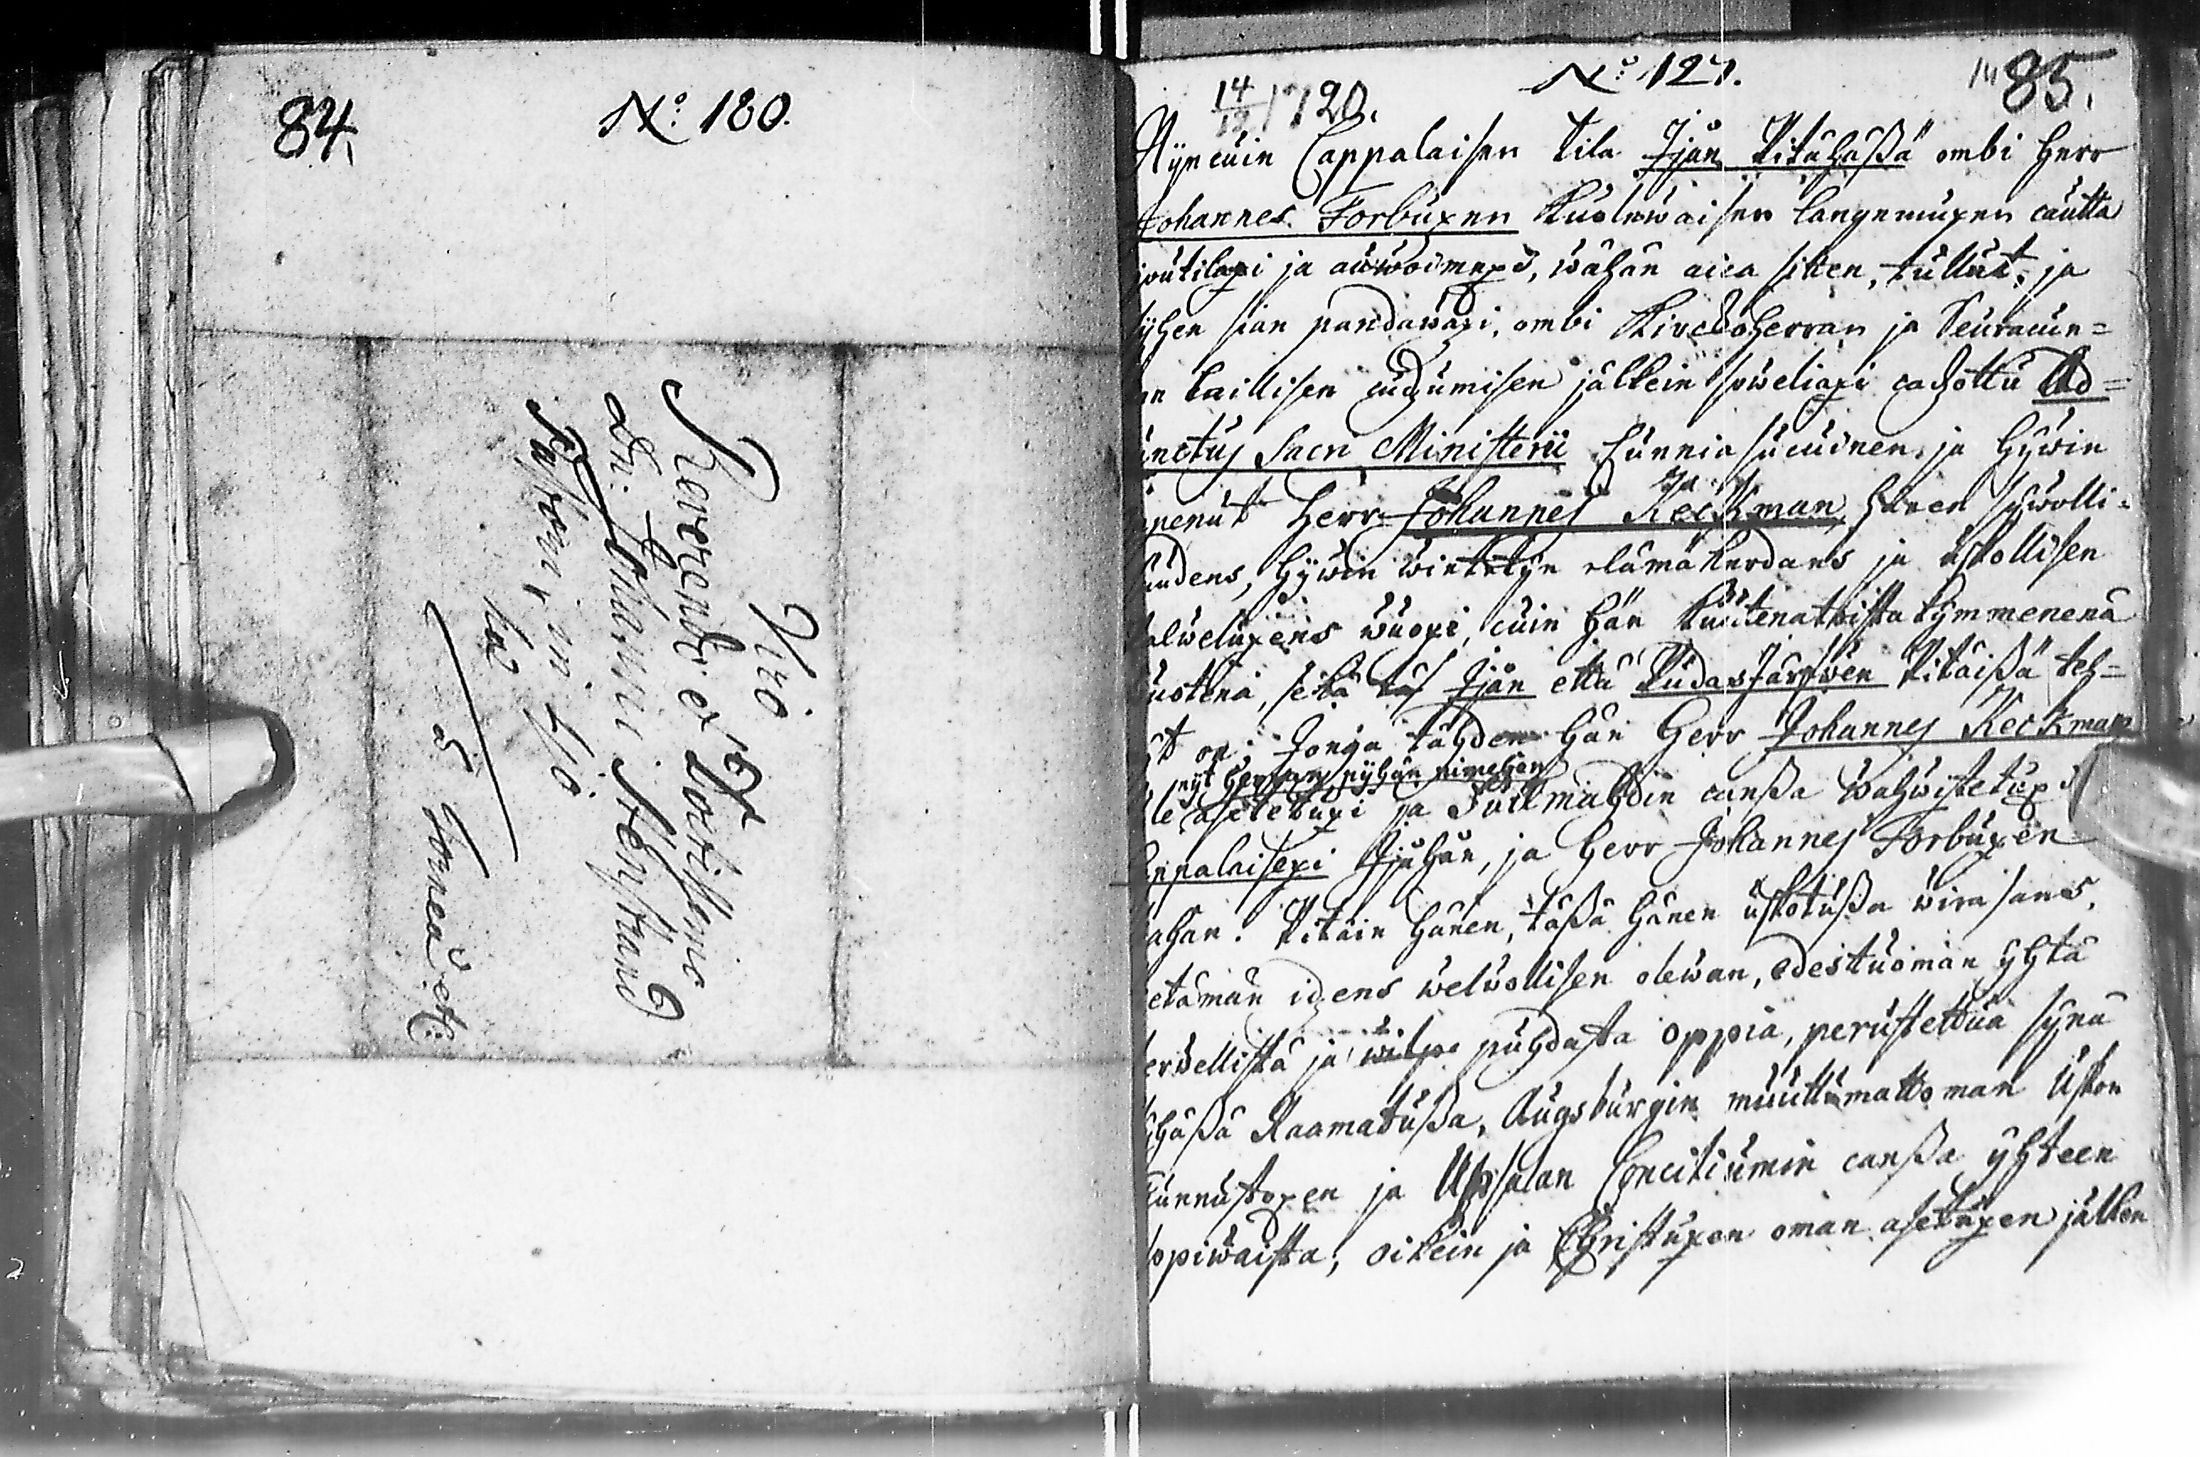 84.
N:o 180.
Viro
Reverendo et Clarissimo
Dno. Johanni Wegelio
Pastori in Ijo
à Torneå etc:
N:o 121.
85.
14/12 1720.
Nijncuin Cappalaisen tila Ijån Pitäjäßä ombi Herr
Johannes Forbuxen Kuolewaisen langemuxen cautta
joutilaxi ja auwoimexi, wähän aica sitten, tullut, ja
sijhen sian pandawaxi, ombi Kirckoherran ja Seuracun=
laillisen cudzumisen jälkein soweliaxi cadzottu Ad=
junctus Sacri Ministerii Cunniasucuinen ja Hywin
oppenut Herr Johannes Keckman hänen sijwolli=
sudens, hywin wietetyn elämäkerdans ja uskollisen
palweluxens wuoxi, cuin hän Kuutenatoistakymmenenä
wuotena, sekä Ijån että Pudasjärfwen Pitäißä teh=
nyt on. Jongatähden hän Herr Johannes Keckman
nyt Herran pyhän nimehen
asetetaxi ja Fullmahdin canßa wahwistetuxi
Cappalaisexi Ijåhån, ja Herr Johannes Forbuxen
siahan. Pitäin hänen, täßä hänen uskotußa wirasans,
pitämän idzens welwollisen olewan, edestuoman yhtä
terwellistä ja puhdasta oppia, perustettua sijnä
Pyhäßä Raamatußa, Augsburgin muuttumattoman Uskon
tunnustoxen ja Upsalan Concilliumin canßa yhteen
sopiwaista, oikein ja Christuxen oman asetuxen jälken